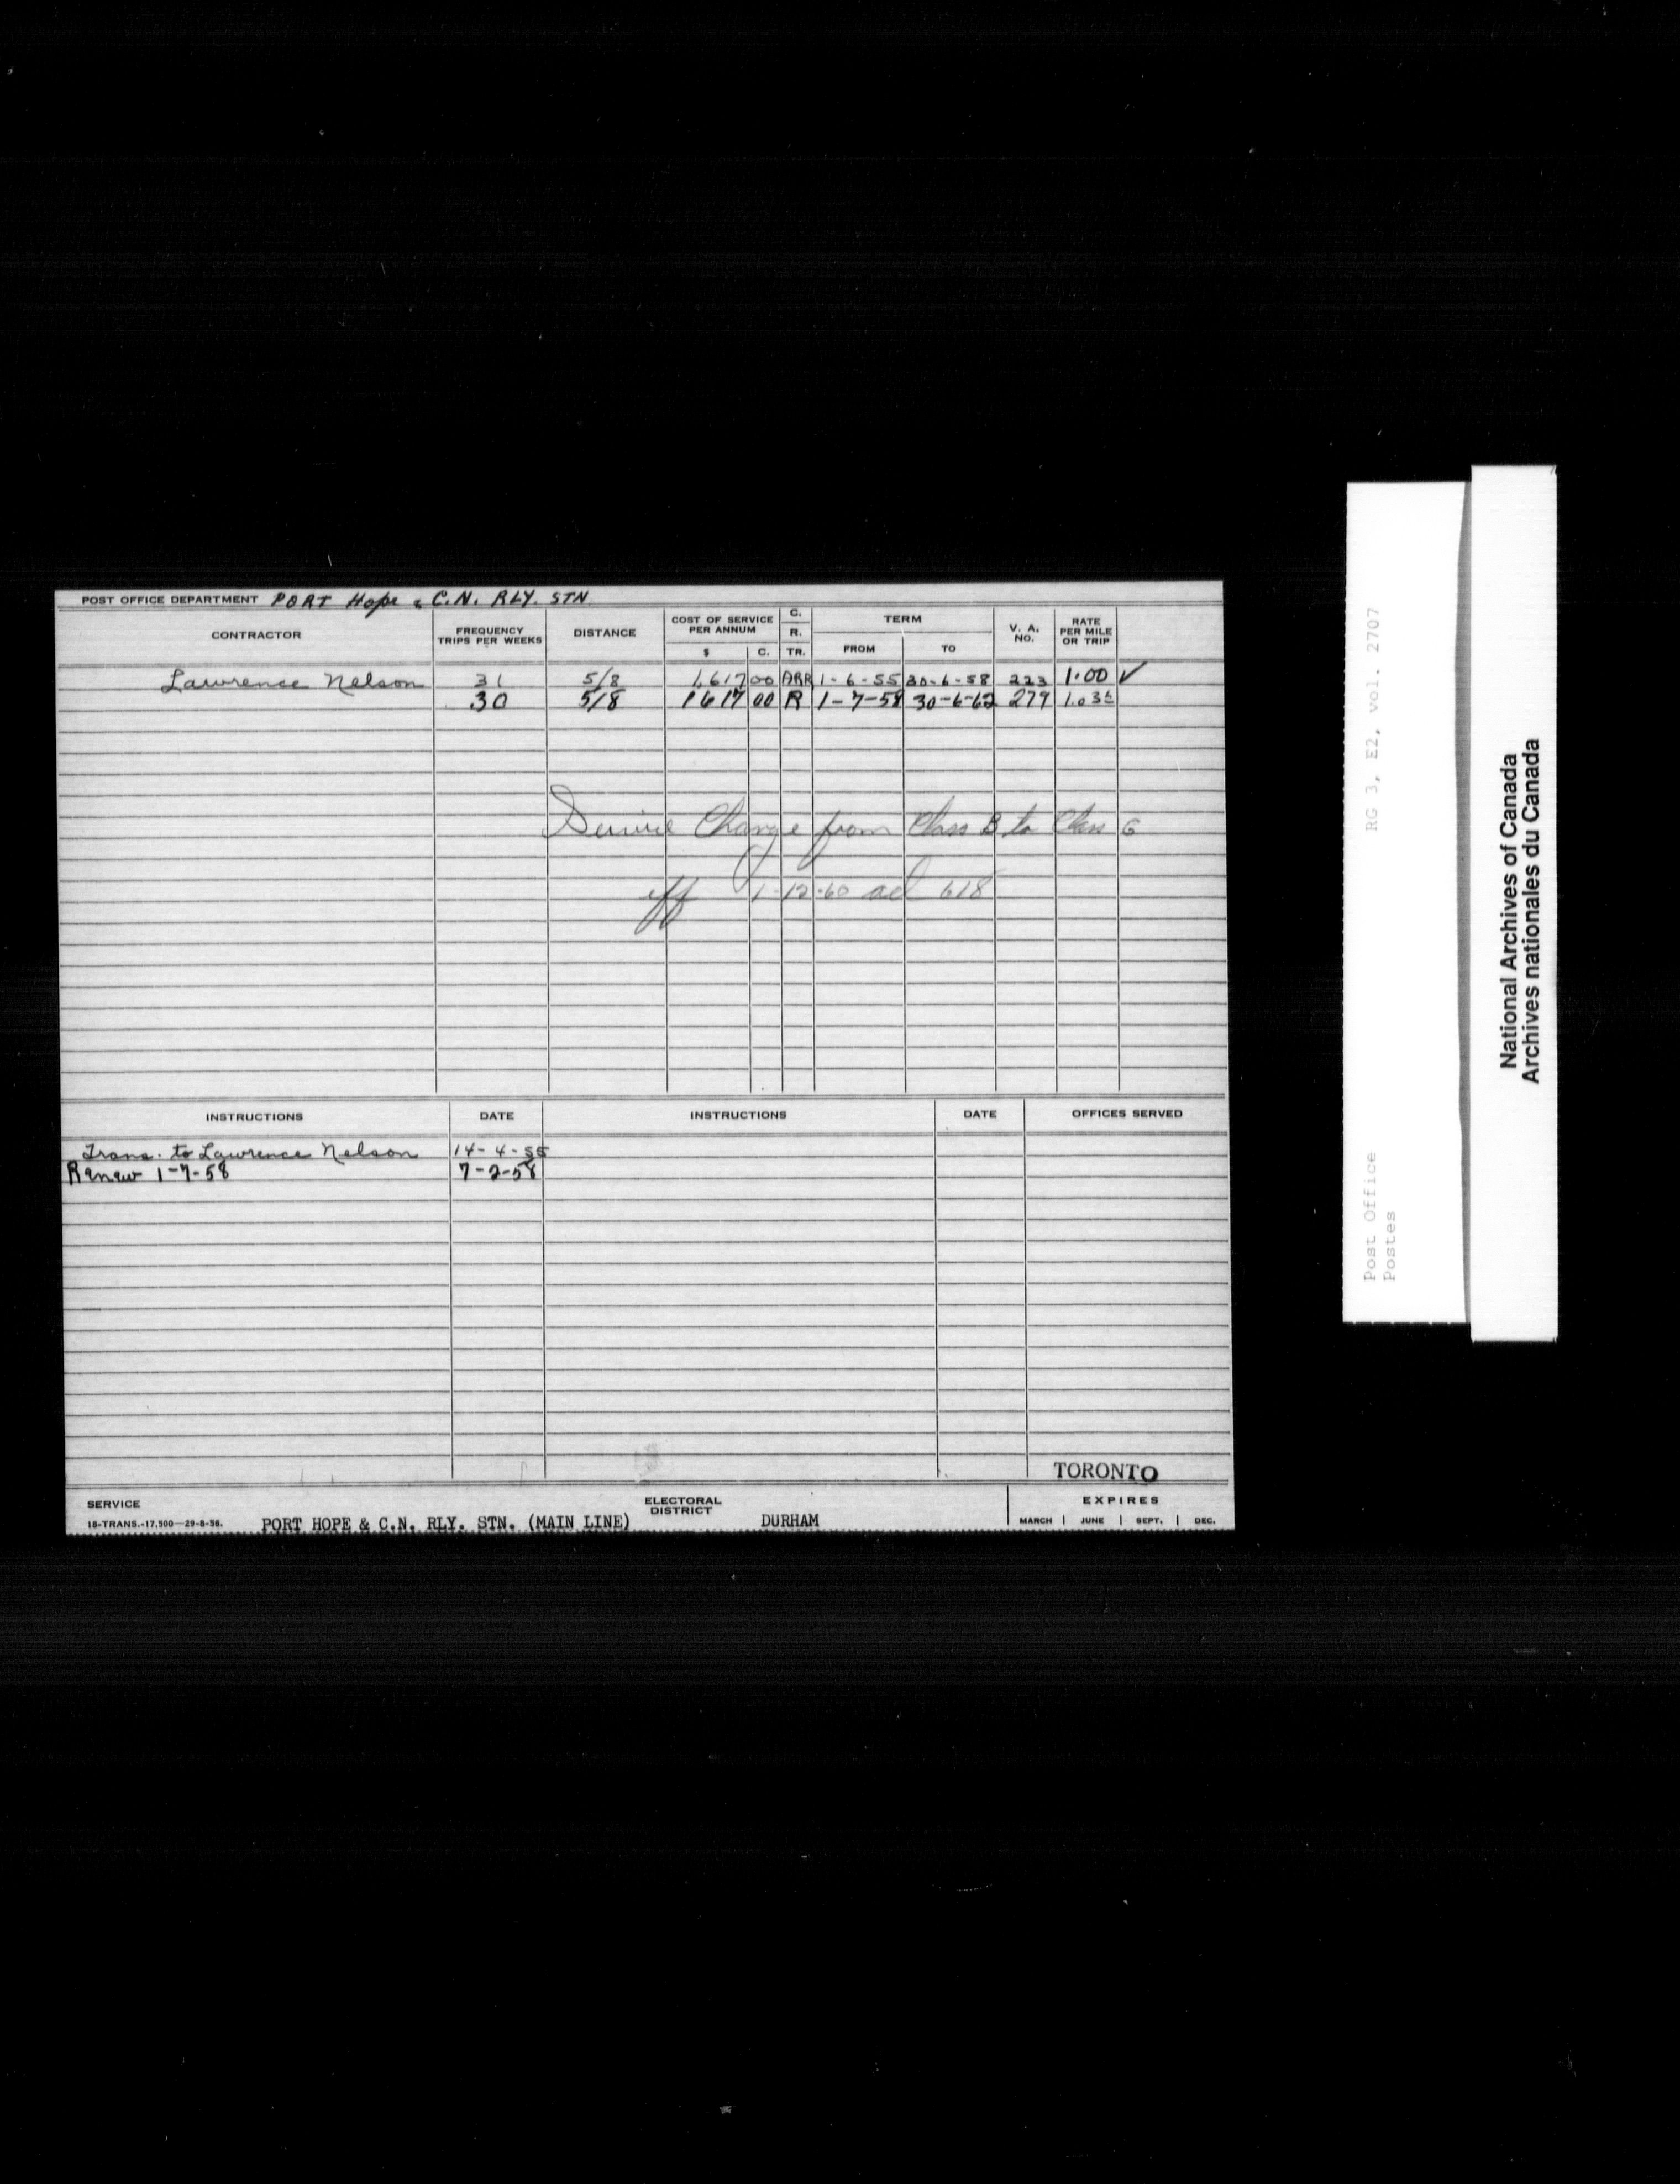 POST OFFICE DEPARTMENT PORT Hope & C.N. RLY. STN.
CONTRACTOR FREQUENCY TRIPS PER WEEKS DISTANCE COST OF SERVICE PER ANNUM $ C. C. R. TR. TERM FROM TO V. A. NO. RATE PER MILE OR TRIP
Lawrence Nelson 31 5/8 1,617 00 ARR 1-6-55 30-6-58 223 1.00 ✓
30 5/8 1617 00 R 1-7-58 30-6-62 279 1.03
Service Change from Class B to Class G
eff 1-12-60 618
INSTRUCTIONS DATE INSTRUCTIONS DATE OFFICES SERVED
Trans. to Lawrence Nelson 14-4-55
Renew 1-7-58 7-2-58
TORONTO
SERVICE ELECTORAL DISTRICT EXPIRES
18-TRANS.-17,500—29-8-56. PORT HOPE & C.N. RLY. STN. (MAIN LINE) DURHAM MARCH | JUNE | SEPT. | DEC.
Post Office RG 3, E2, vol. 2707
Postes
National Archives of Canada
Archives nationales du Canada